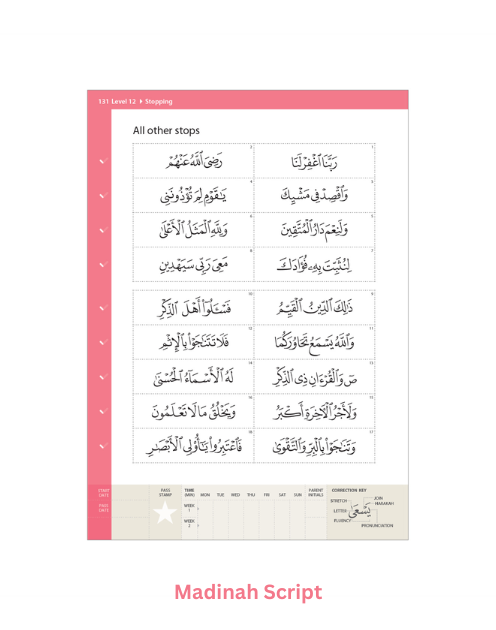 131 Level 12 › Stepping
All other stops
1 رَبَّنَا ٱغْفِرْ لَنَا
2 رَضِىَ ٱللَّهُ عَنْهُمْ
3 وَٱقْصِدْ فِى مَشْيِكَ
4 يَـٰقَوْمِ لِمَ تُؤْذُونَنِى
5 وَلَنِعْمَ دَارُ ٱلْمُتَّقِينَ
6 وَلِلَّهِ ٱلْمَثَلُ ٱلْأَعْلَىٰ
7 لِنُثَبِّتَ بِهِۦ فُؤَادَكَ
8 مَعِىَ رَبِّى سَيَهْدِينِ
9 ذَٰلِكَ ٱلدِّينُ ٱلْقَيِّمُ
10 فَسْـَٔلُوٓا۟ أَهْلَ ٱلذِّكْرِ
11 وَٱللَّهُ يَسْمَعُ تَحَاوُرَكُمَا
12 فَلَا تَتَنَـٰجَوْا۟ بِٱلْإِثْمِ
13 صٓ وَٱلْقُرْءَانِ ذِى ٱلذِّكْرِ
14 لَهُ ٱلْأَسْمَآءُ ٱلْحُسْنَىٰ
15 وَلَأَجْرُ ٱلْـَٔاخِرَةِ أَكْبَرُ
16 وَيَخْلُقُ مَا لَا تَعْلَمُونَ
17 وَتَنَـٰجَوْا۟ بِٱلْبِرِّ وَٱلتَّقْوَىٰ
18 فَٱعْتَبِرُوا۟ يَـٰٓأُو۟لِى ٱلْأَبْصَـٰرِ
START DATE
PASS DATE
PASS STAMP
TIME (MIN) MON TUE WED THU FRI SAT SUN
PARENT INITIALS
WEEK 1
WEEK 2
CORRECTION KEY
STRETCH
JOIN
HARAKAH
LETTER
يَسْعَىٰ
FLUENCY
PRONUNCIATION
Madinah Script